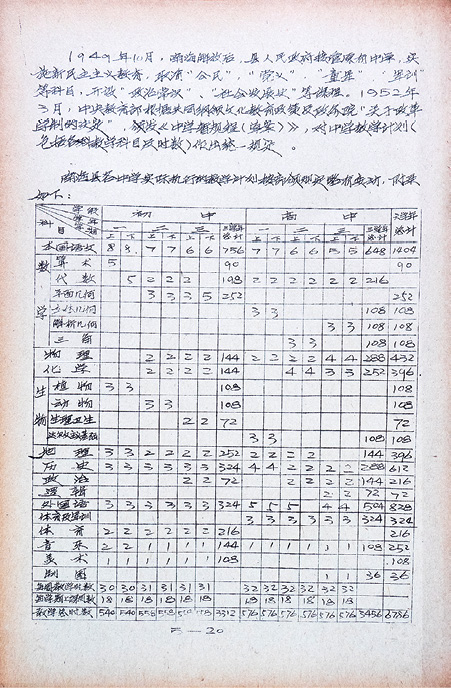 1949年10月，临海解放后，县人民政府接管原初中学，实
施新民主主义教育，取消“公民”、“党义”、“童军”、“军训”
等科目，开设“政治常识”、“社会发展史”等课程。1952年
3月，中央教育部根据共同纲领文化教育政策及政务院“关于改革
学制的决定”，颁发《中学暂规程（草案）》，对中学教学计划（
包括各科教学科目及时数）作出统一规定。
临海县各中学实际执行的教学计划
如下：
学校 学年 学期 科目 初中 高中 六学年总计
一 二 三 三学年总计 一 二 三 三学年总计
上 下 上 下 上 下 上 下 上 下 上 下
本国语文 8 8 7 7 6 6 756 7 7 6 6 5 5 648 1404
数学 算术 5 90 90
代数 5 2 2 2 198 2 2 2 2 2 2 216
平面几何 3 3 3 5 252 252
3 3 108 108
解析几何 3 3 108 108
三角 3 3 108 108
物理 2 2 2 2 144 2 2 2 2 4 4 288 432
化学 2 2 2 2 144 4 4 3 3 252 396
生物 植物 3 3 108 108
动物 3 3 108 108
生理卫生 2 2 72 72
达尔文主义基础 3 3 108 108
地理 3 3 2 2 2 2 252 2 2 2 2 144 396
历史 3 3 3 3 3 3 324 4 4 2 2 2 2 288 612
政治 2 2 72 2 2 2 2 144 216
逻辑 2 2 72 72
外国语 3 3 3 3 3 3 324 5 5 5 5 4 4 504 828
体育及军训 3 3 3 3 3 3 324 324
体育 2 2 2 2 2 2 216 216
音乐 2 2 1 1 1 1 144 1 1 1 1 1 1 108 252
美术 1 1 1 1 1 1 108 108
制图 1 1 36 36
每周教学时数 30 30 31 31 31 31 32 32 32 32 32 32
每学期上课周数 18 18 18 18 18 18 18 18 18 18 18 18
教学总时数 540 540 558 558 558 558 3312 576 576 576 576 576 576 3456 6786
5—20